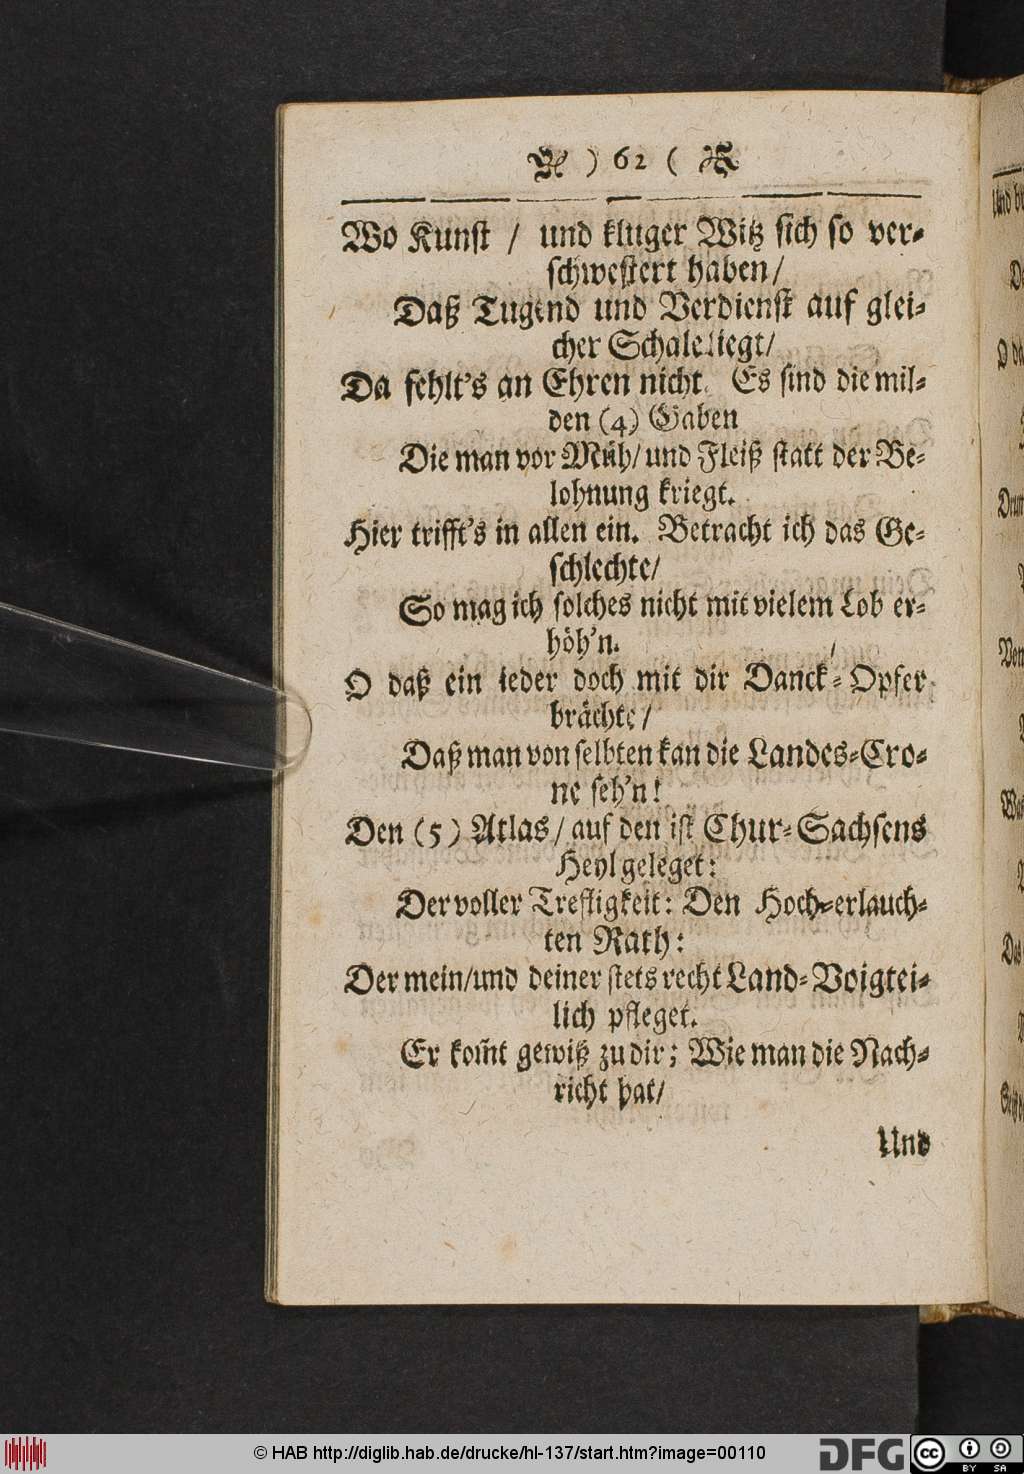 ) 62 (
Wo Kunst / und kluger Witz sich so ver-
schwestert haben/
Daß Tugend und Verdienst auf glei-
cher Schale liegt/
Da fehlt's an Ehren nicht. Es sind die mil-
den (4) Gaben
Die man vor Müh/ und Fleiß statt der Be-
lohnung kriegt.
Hier trifft's in allen ein. Betracht ich das Ge-
schlechte/
So mag ich solches nicht mit vielem Lob er-
höh'n.
O daß ein ieder doch mit dir Danck-Opfer
brächte/
Daß man von selbten kan die Landes-Cro-
ne seh'n!
Den (5) Atlas/ auf den ist Chur-Sachsens
Heyl geleget:
Der voller Trefligkeit: Den Hoch-erlauch-
ten Rath:
Der mein/und deiner stets recht Land-Voigtei-
lich pfleget.
Er kom̃t gewiß zu dir; Wie man die Nach-
richt hat/
Und
© HAB http://diglib.hab.de/drucke/hl-137/start.htm?image=00110
DFG
cc BY SA